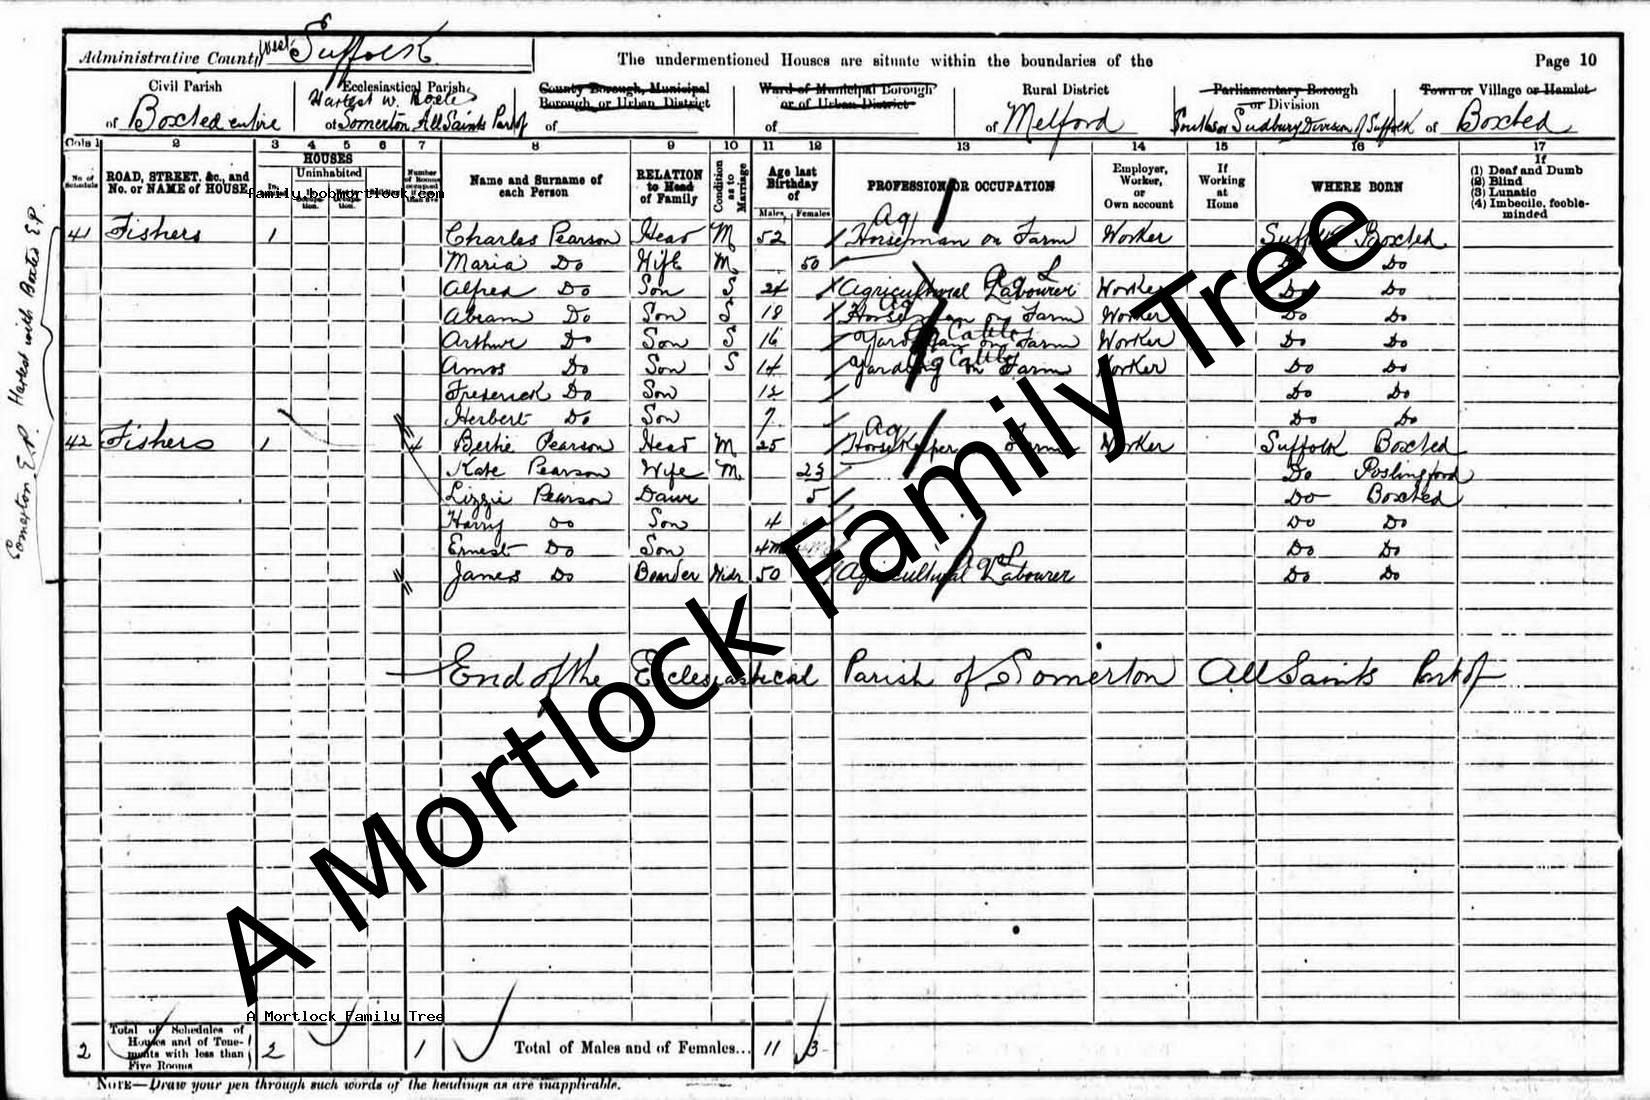 Administrative County West Suffolk
The undermentioned Houses are situate within the boundaries of the
Page 10
Civil Parish
of Boxted entire
Ecclesiastical Parish
Hartest w. Boxted
of Somerton All Saints Part of
County Borough, Municipal
Borough, or Urban District
of
Ward of Municipal Borough
or of Urban District
of
Rural District
of Melford
Parliamentary Borough
or Division
Sudbury Division of Suffolk
Town or Village or Hamlet
of Boxted
Cols 1 2 3 4 5 6 7 8 9 10 11 12 13 14 15 16 17
No. of Schedule
ROAD, STREET, &c., and
No. or NAME of HOUSE
HOUSES
Uninhabited
Number of Rooms
Name and Surname of
each Person
RELATION
to Head
of Family
Condition
as to
Marriage
Age last
Birthday
of
Males, Females
PROFESSION OR OCCUPATION
Employer,
Worker,
or
Own account
If
Working
at
Home
WHERE BORN
If
(1) Deaf and Dumb
(2) Blind
(3) Lunatic
(4) Imbecile, feeble-
minded
family.bobmortlock.com
Ag
41 Fishers 1 Charles Pearson Head M 52 Horseman on Farm Worker Suffolk Boxted
Maria Do Wife M 50 Do Do
Ag L
Alfred Do Son S 24 Agricultural Labourer Worker Do Do
Ag
Abram Do Son S 18 Horseman on Farm Worker Do Do
Cattle
Arthur Do Son S 16 Yardman on Farm Worker Do Do
Cattle
Amos Do Son S 14 on Farm Worker Do Do
Frederick Do Son 12 Do Do
Herbert Do Son 7 Do Do
Ag
42 Fishers 1 4 Bertie Pearson Head M 25 Horsekeeper Farm Worker Suffolk Boxted
Kate Pearson Wife M 23 Do Poslingford
Lizzie Pearson Daur 5 Do Boxted
Harry Do Son 4 Do Do
Ernest Do Son 4m Do Do
Ag L
James Do Boarder Widr 50 Agricultural Labourer Do Do
Somerton E.P. Hartest with Boxted E.P.
End of the Ecclesiastical Parish of Somerton All Saints Part of
A Mortlock Family Tree
A Mortlock Family Tree
2 Total of Schedules of
Houses and of Tene-
ments with less than
Five Rooms
2 1 Total of Males and of Females... 11 3
NOTE—Draw your pen through such words of the headings as are inapplicable.